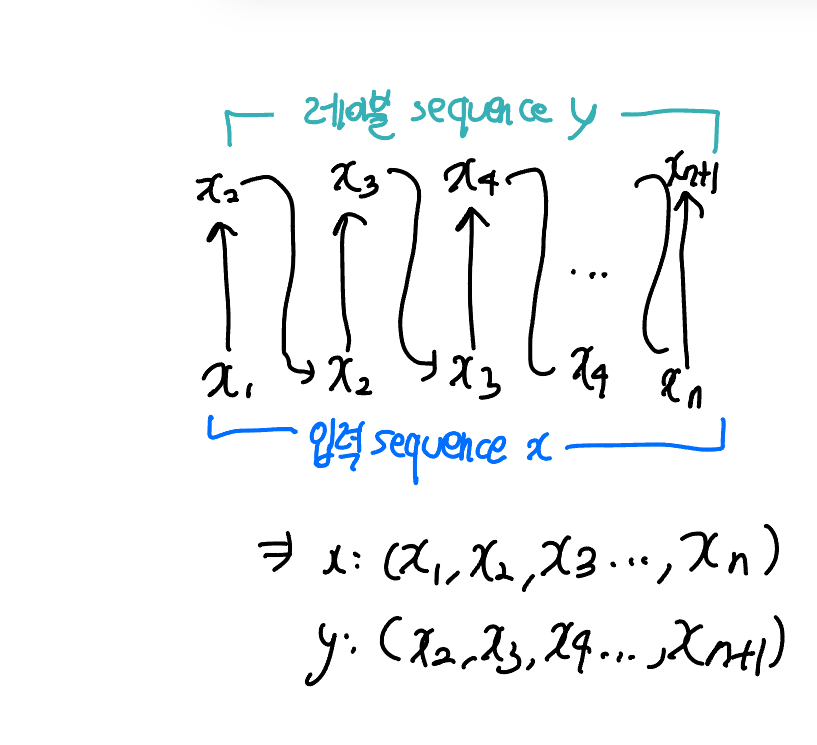 레이블 sequence y
x₂ x₃ x₄ xₙ₊₁
...
x₁ x₂ x₃ x₄ xₙ
입력 sequence x
⇒ x: (x₁, x₂, x₃ ..., xₙ)
y: (x₂, x₃, x₄ ..., xₙ₊₁)